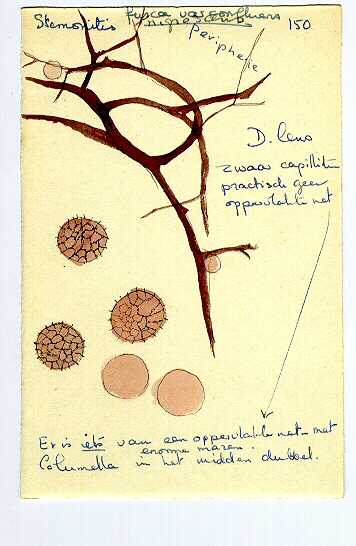 Stemonitis fusca var confluens 150
nigrescens
Peripherie
D. leno
zwaar capillitium
practisch geen
oppervlakte net
Er is iets van een oppervlakte net met
enorme mazen.
Columella in het midden dubbel.